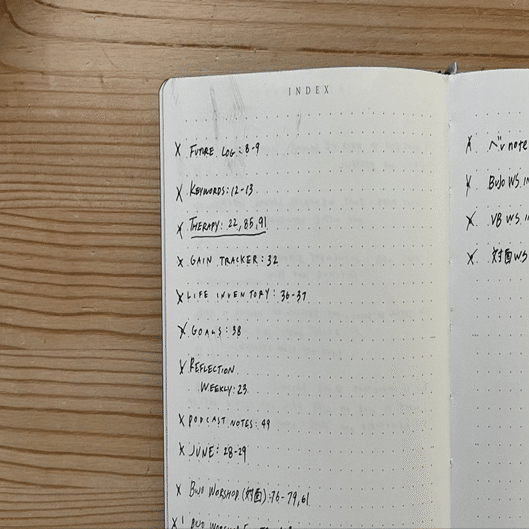 INDEX
X FUTURE LOG: 8-9
X KEYWORDS: 12-13
X THERAPY: 22, 85, 91
X GAIN TRACKER: 32
X LIFE INVENTORY: 36-37
X GOALS: 38
X REFLECTION
WEEKLY: 23
X PODCAST NOTES: 49
X JUNE: 28-29
X BUJO WORSHOP (対面): 76-79, 61
X note
X BUJO WS
X VB WS
X 対面 WS